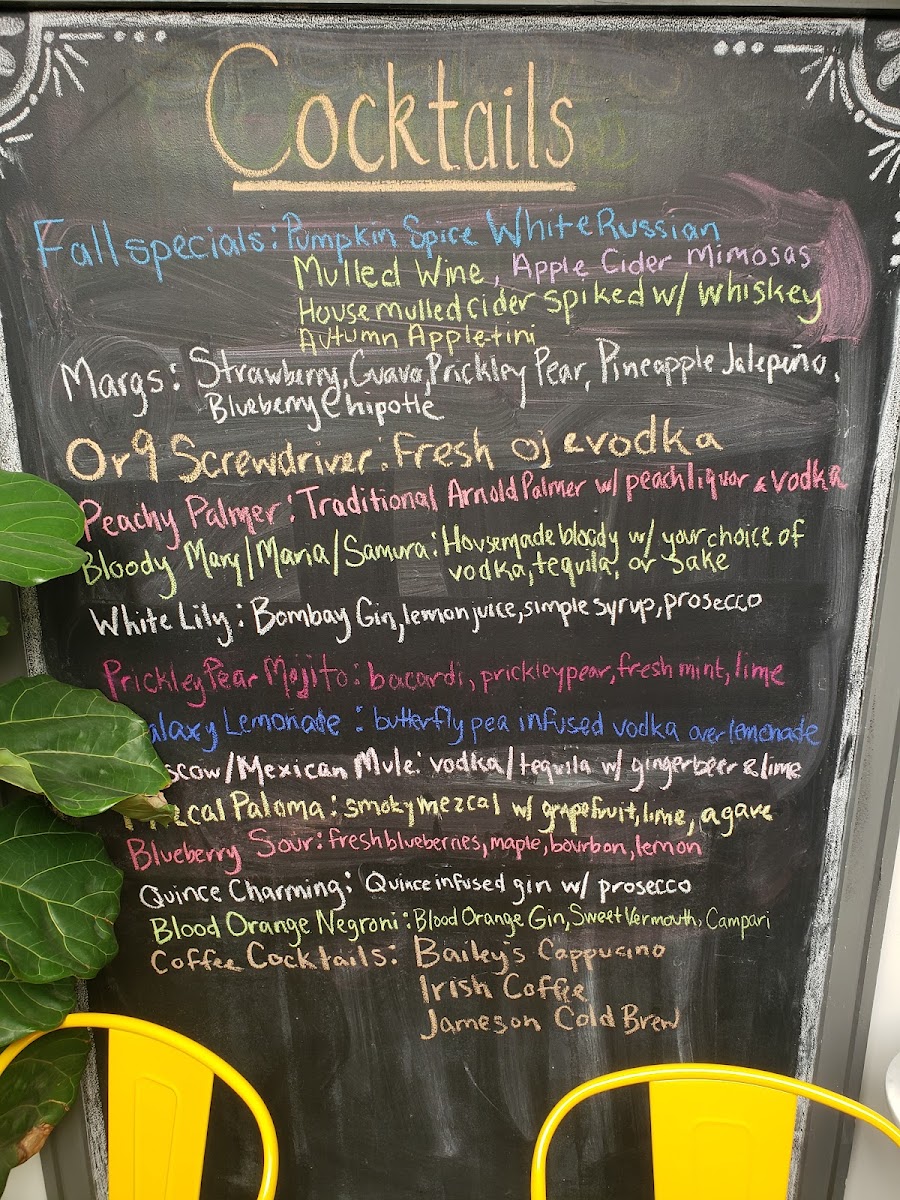 Cocktails
Fall specials: Pumpkin Spice White Russian
Mulled Wine, Apple Cider Mimosas
House mulled cider spiked w/ whiskey
Autumn Apple-tini
Margs: Strawberry, Guava, Prickley Pear, Pineapple Jalepeño,
Blueberry Chipotle
Screwdriver: Fresh oj & vodka
Peachy Palmer: Traditional Arnold Palmer w/ peach liquor & vodka
Bloody Mary/Maria/Samura: Housemade bloody w/ your choice of
vodka, tequila, or sake
White Lily: Bombay Gin, lemon juice, simple syrup, prosecco
Prickley Pear Mojito: bacardi, prickley pear, fresh mint, lime
alaxy Lemonade: butterfly pea infused vodka over lemonade
scow/Mexican Mule: vodka/tequila w/ gingerbeer & lime
cal Paloma: smoky mezcal w/ grapefruit, lime, agave
Blueberry Sour: fresh blueberries, maple, bourbon, lemon
Quince Charming: Quince infused gin w/ prosecco
Blood Orange Negroni: Blood Orange Gin, Sweet Vermouth, Campari
Coffee Cocktails: Bailey's Cappucino
Irish Coffee
Jameson Cold Brew